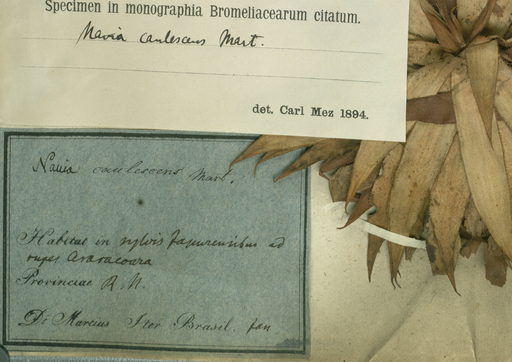 Specimen in monographia Bromeliacearum citatum.
Navia caulescens Mart.
det. Carl Mez 1894.
Navia caulescens Mart.
Habitat in sylvis Japurensibus ad
rupes Araracoara
Provinciae R. N.
Dr Martius Iter Brasil.